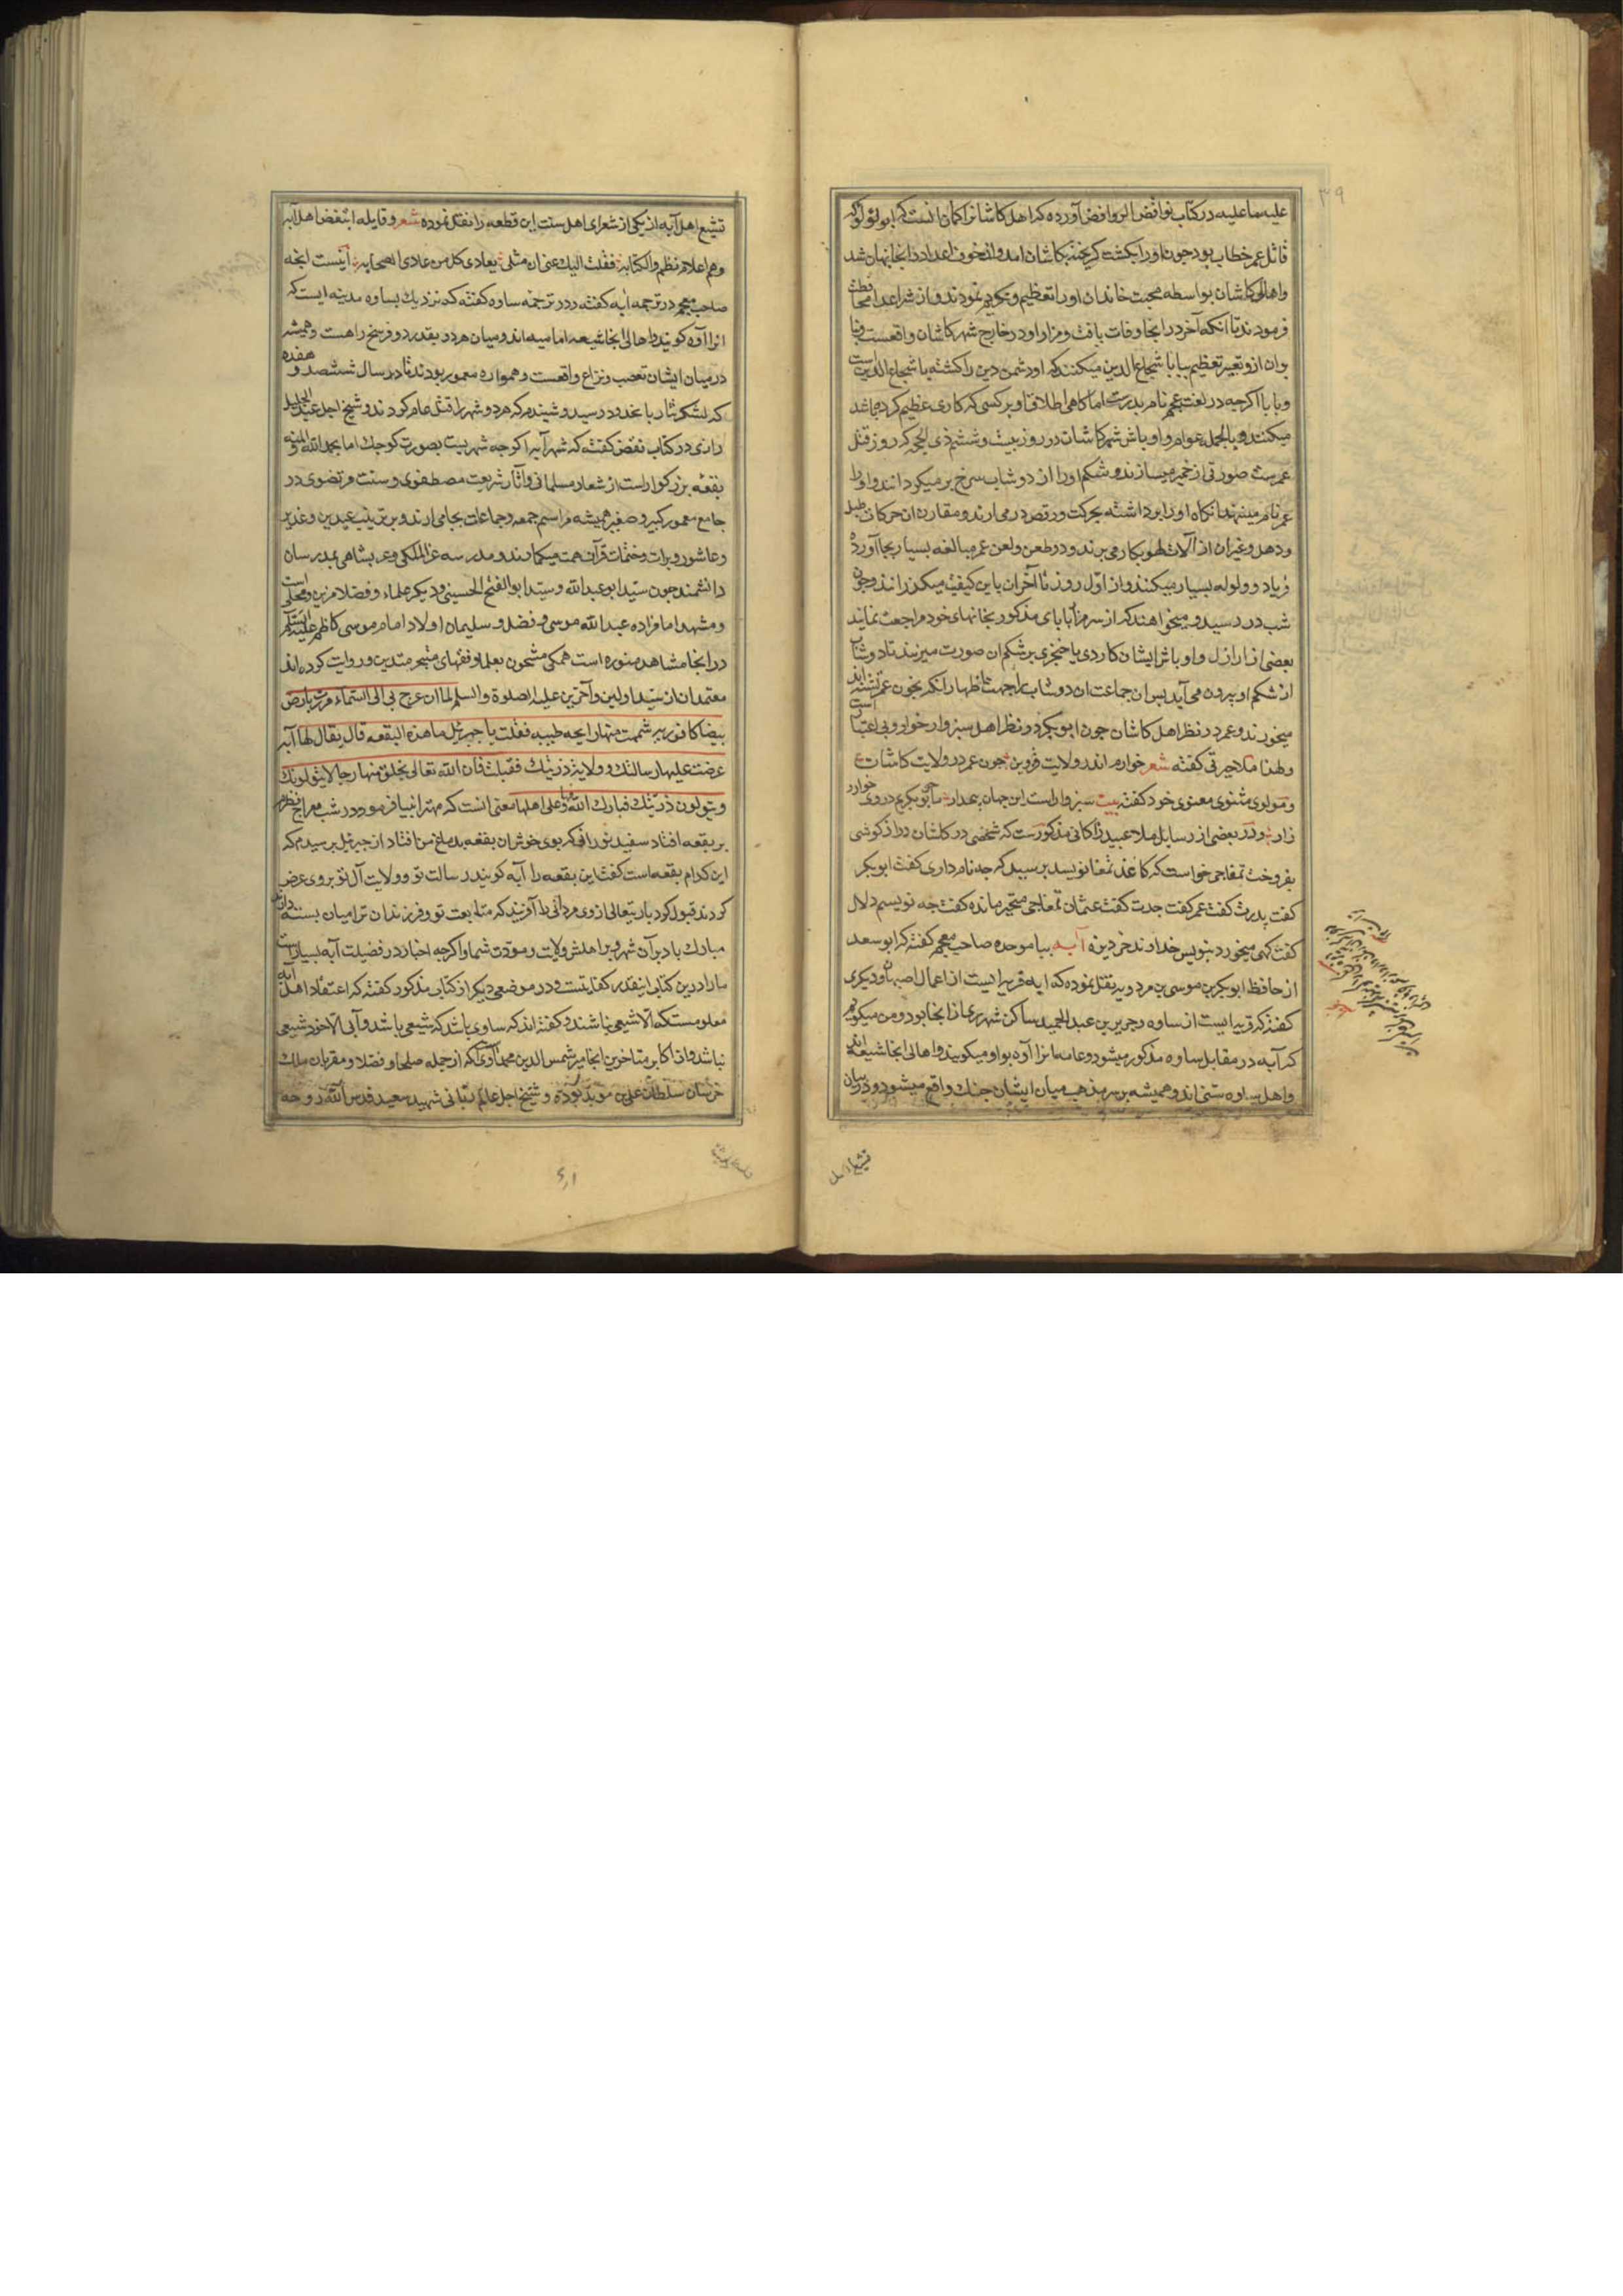 علیه ما علیه در کتاب نوافض الروافض آورده که اهل کاشانرا کمان انست که ابولؤلؤ که
قاتل عمر خطاب بود جون اورا بکشت کریخته بکاشان امد و از خوف اعدا در انجا پنهان شد
و اهالی کاشان بواسطه محبت خاندان اورا تعظیم و تکریم نمودند و از شر اعدا محافظت
فرمودند تا انکه آخر در انجا وفات یافت و مزار او در خارج شهر کاشان واقعست و بنا
بران ازو تعبیر تعظیم ببابا شجاع الدین میکنند که او دشمن دین را کشته یا شجاع الدین است
و بابا اکرجه در لغت عجم نام پدرست اما کاهی اطلاق او بر کسی که کاری عظیم کرده باشد
میکنند و بالجمله عوام و اوباش شهر کاشان در روز بیست و ششم ذی الحجه که روز قتل
عمرست صورتی از خمیر میسازند و شکم اورا از دوشاب سرخ پر میکردانند و اورا
عمر نام مینهند انکاه اورا برداشته بحرکت و رقص در می ارند و مقارن ان حرکات طبل
و دهل و غیران از آلات لهو بکار می برند و در طعن و لعن عمر مبالغه بسیار بجا آورده
فریاد و ولوله بسیار میکنند و از اول روز تا آخران باین کیفیت میکزرانند و جون
شب در رسید و میخواهند که از سر مزار بابای مذکور بخانهای خود مراجعت نمایند
بعضی از ارازل و اوباش ایشان کاردی یا خنجری بر شکم ان صورت میزنند تا دوشاب
از شکم او بیرون می آید پس ان جماعت ان دوشاب را جهت اظهار انکه بخون عمر تشنه اند
میخورند و عمر در نظر اهل کاشان جون ابوبکر در نظر اهل سبزوار خوار و بی اعتبار است
و لهذا ملا حیرتی کفته شعر خوارم اندر ولایت قزوین جون عمر در ولایت کاشان
و مولوی مثنوی معنوی خود کفته بیت سبزوارست این جهان بیمدار ما جو بوبکریم در وی خوار
زار و در بعضی از رسایل ملا عبید زاکانی مذکورست که شخصی در کاشان دراز کوشی
بفروخت تمغاجی خواست که کاغذ تمغا نویسد پرسید که جه نام داری کفت ابوبکر
کفت پدرت کفت عمر کفت جدت کفت عثمان تمغاجی متحیر مانده کفت جه نویسم دلال
کفت کهی میخورد بنویس خداوند خر دیزه آبه بباء موحده صاحب معجم کفته که ابو سعد
از حافظ ابوبکر بن موسی بن مردویه نقل نموده که ابه قریه ایست از اعمال اصبهان و دیکری
کفته که قریه ایست از ساوه و جریر بن عبد الحمید ساکن شهر ری از انجا بود و من میکویم
که آبه در مقابل ساوه مذکور میشود و عامه انرا آوه بواو میکویند و اهالی انجا شیعه اند
و اهل ساوه سنی اند و همیشه بر سر مذهب میان ایشان جنک واقع میشود و در بیان
تشیع اهل
تشیع اهل آبه از یکی از شعرای اهل سنت این قطعه را نقل نموده شعر و قایله اتبغض اهل آبه
وهم اعلام نظم والکتابه فقلت الیک عنی ان مثلی یعادی کل من عادی الصحابه اینست انجه
صاحب معجم در ترجمه ابه کفته و در ترجمه ساوه کفته که نزدیک بساوه مدینه ایست که
انرا آوه کویند و اهالی انجا شیعه امامیه اند و میان هر دو بقدر دو فرسخ راهست و همیشه
در میان ایشان تعصب و نزاع واقعست و همواره معمور بودند تا در سال ششصد و هفده
که لشکر تتار باحدود رسید و شنیدم که هر دو شهر را قتل عام کردند و شیخ اجل عبد الجلیل
رازی در کتاب نقض کفته که شهر آبه اکرجه شهریست بصورت کوجک اما بحمد الله و المنه
بقعه بزرکوارست از شعار مسلمانی و آثار شریعت مصطفوی و سنت مرتضوی در
جامع معمور کبیر و صغیر همیشه مراسم جمعه و جماعات بجا می ارند و بترتیب عیدین و غدیر
و عاشور و برات و ختمات قرآن همت میکمارند و مدرسه عز الملکی و عربشاهی بمدرسان
دانشمند جون سید ابو عبد الله و سید ابو الفتح الحسینی و دیکر علماء و فضلا مزین و محلی است
و مشهد امامزاده عبد الله موسی و فضل و سلیمان اولاد امام موسی کاظم علیه السلم
در انجا مشاهد منوره است همکی مشحون بعلما و فقهای متبحر متدین و روایت کرده اند
معتمدان از سید اولین و آخرین علیه الصلوة و السلم لما ان عرج بی الی السماء مررت بارض
بیضا کافوریه شممت منها رایحه طیبه فقلت یا جبرئیل ما هذه البقعه قال یقال لها آبه
عرضت علیها رسالتک و ولایه ذریتک فقبلت فان الله تعالی یخلق منها رجالا یتولونک
و یتولون ذریتک فبارک الله فیها و علی اهلها معنی انست که مهتر انبیا فرمود در شب معراج نظرم
بر بقعه افتاد سفید نورانی که بوی خوش ان بقعه بدماغ من افتاد از جبرئیل پرسیدم که
این کدام بقعه است کفت این بقعه را آبه کویند رسالت تو و ولایت آل تو بر وی عرض
کردند قبول کرد باریتعالی از وی مردانی را آفریند که متابعت تو و فرزندان ترا میان بسته دارند
مبارک باد بر آن شهر و بر اهلش ولایت و مودت شما و اکرجه اخبار در فضیلت آبه بسیارست
ما را درین کتاب اینقدر کفایتست و در موضعی دیکر از کتاب مذکور کفته که اعتقاد اهل آبه
معلومست که الا شیعی نباشند و کفته اند که ساوی باشد که شیعی باشد و آبی الا خود شیعی
نباشد و از اکابر متاخرین انجا میر شمس الدین محمد آوی که از جمله صلحا و فضلا و مقربان ملک
خراسان سلطان علی بن موید بوده و شیخ اجل عالم ربانی شهید سعید قدس الله روحه